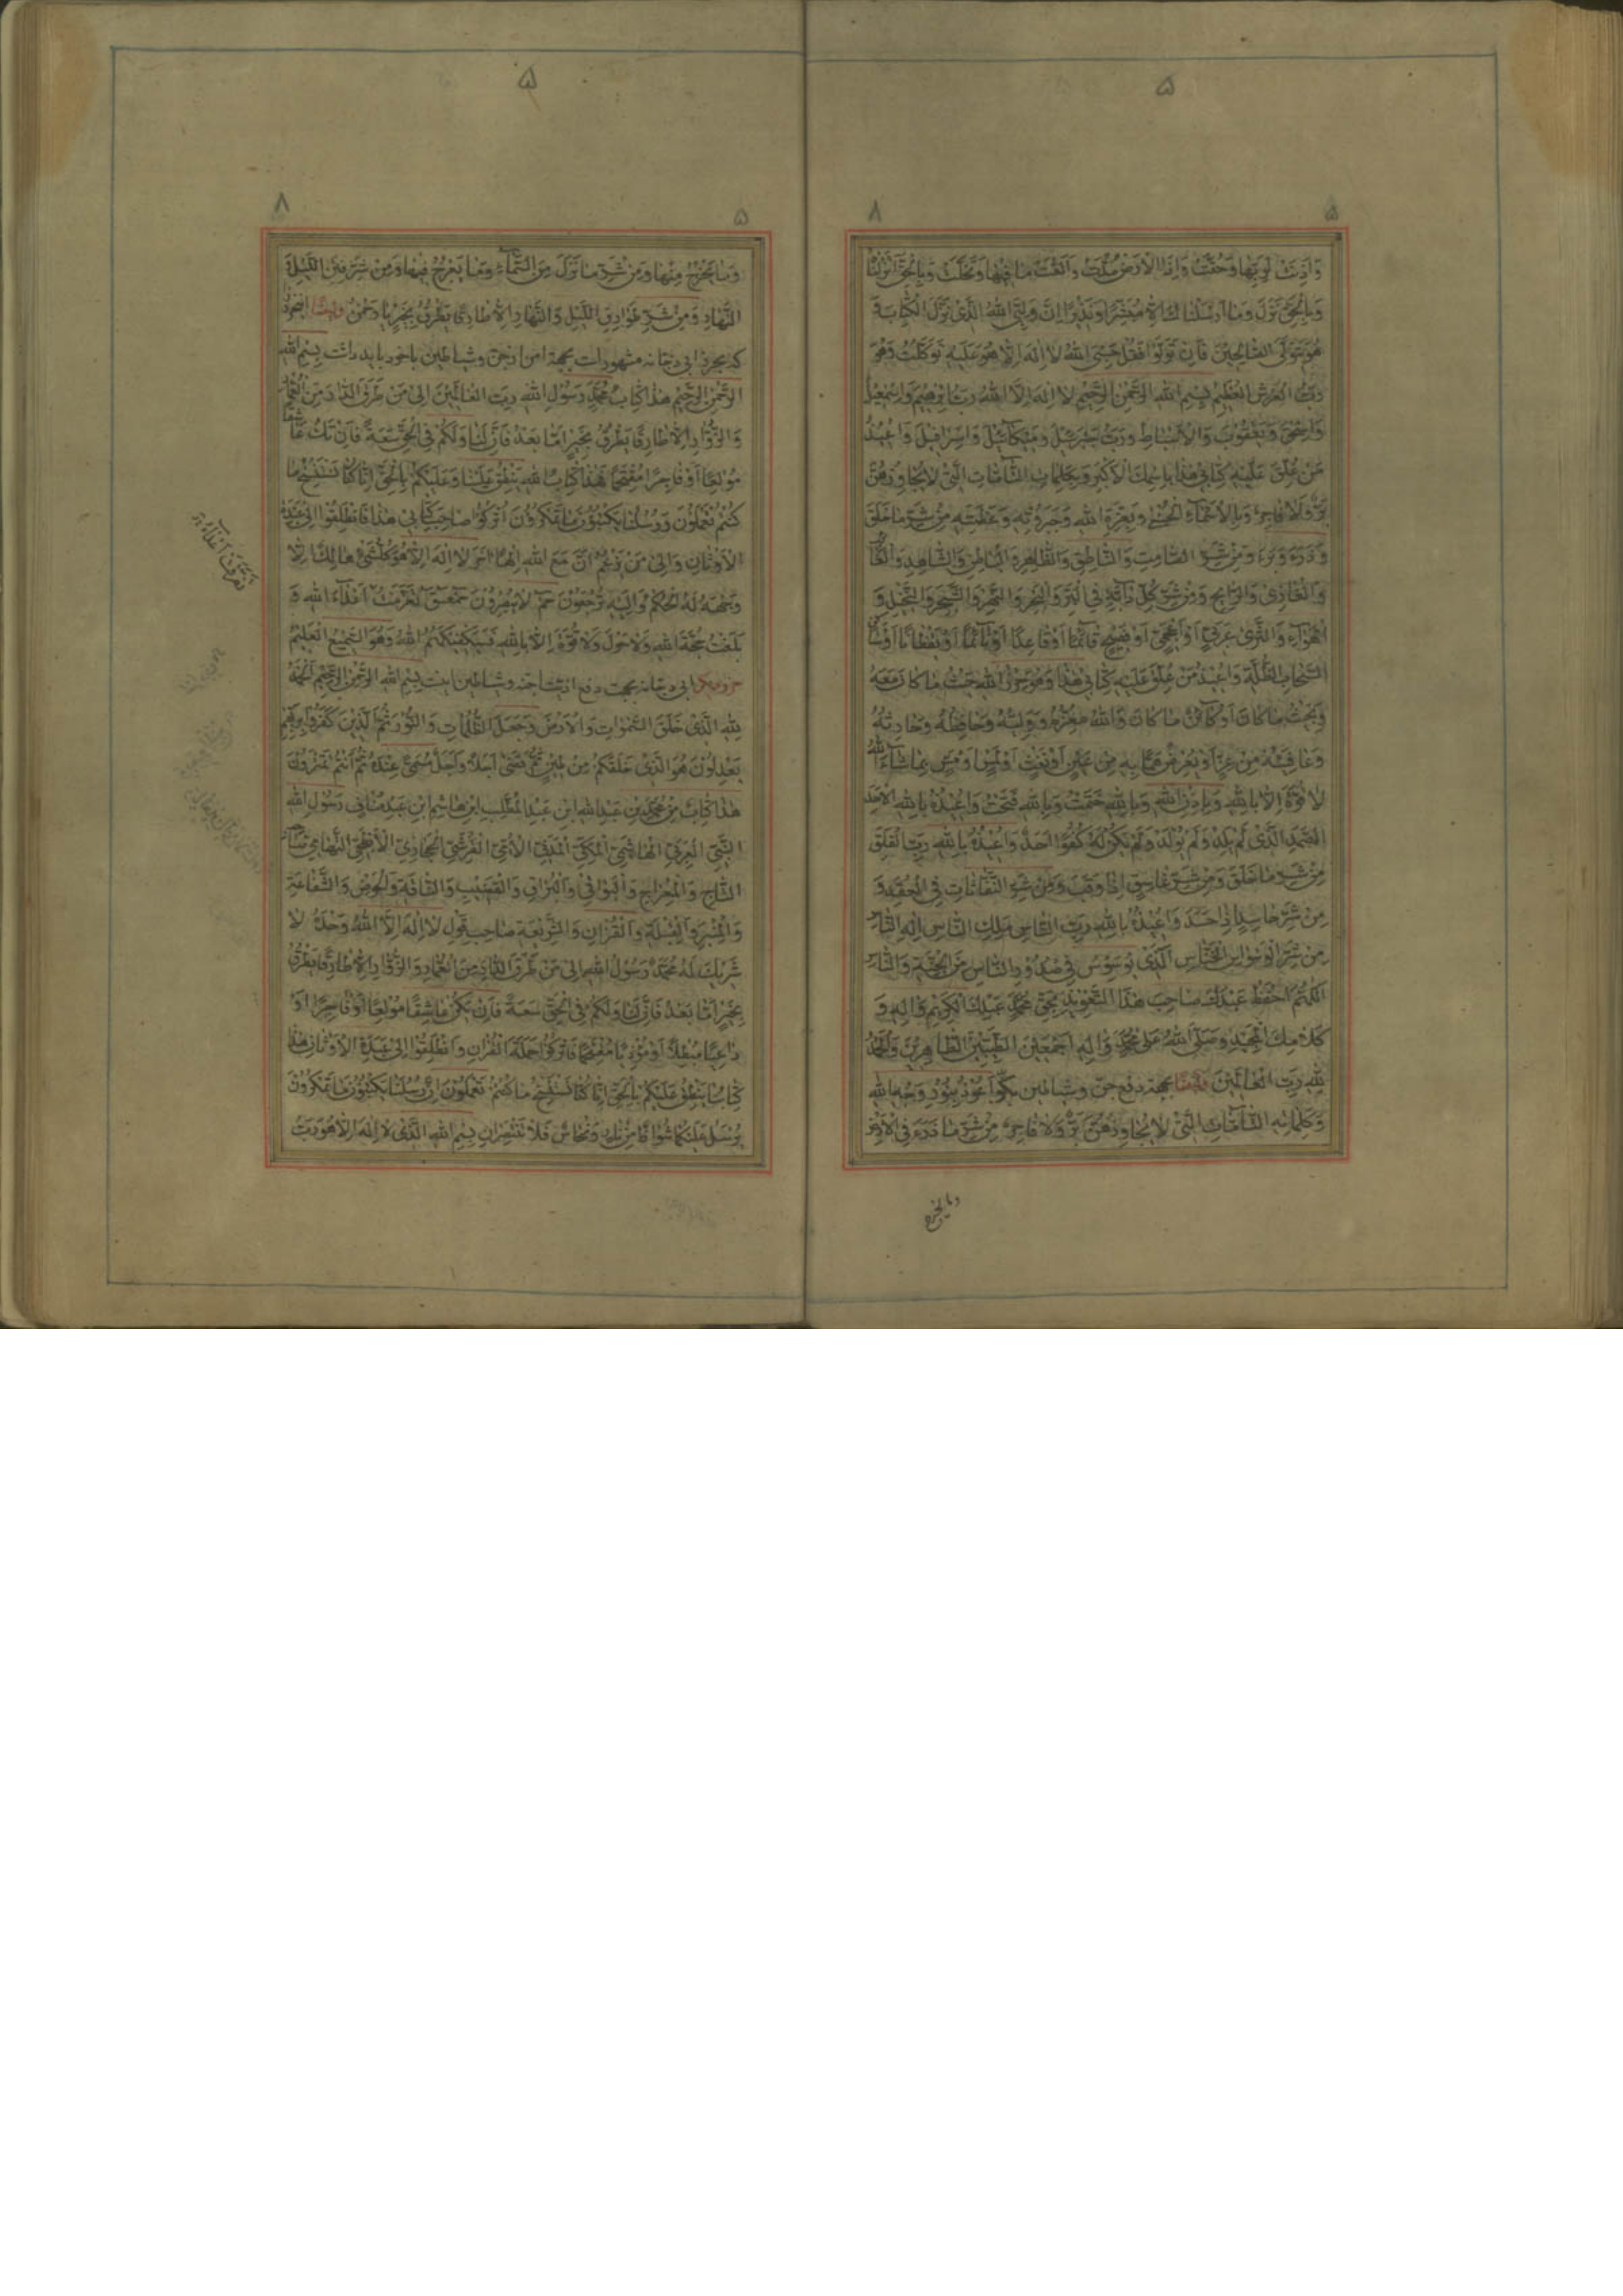 ۵
۸
۵
وَاَذِنَتْ لِرَبِّها وَحُقَّتْ وَاِذَا الْاَرْضُ مُدَّتْ وَاَلْقَتْ ما فِيْها وَتَخَلَّتْ وَبِالْحَقِّ اَنْزَلْناهُ
وَبِالْحَقِّ نَزَلَ وَما اَرْسَلْناكَ اِلّا مُبَشِّرًا وَنَذِيْرًا اِنَّ وَلِيِّيَ اللهُ الَّذِيْ نَزَّلَ الْكِتابَ وَ
هُوَ يَتَوَلَّى الصّالِحِيْنَ فَاِنْ تَوَلَّوْا فَقُلْ حَسْبِيَ اللهُ لا اِلهَ اِلّا هُوَ عَلَيْهِ تَوَكَّلْتُ وَهُوَ
رَبُّ الْعَرْشِ الْعَظِيْمِ بِسْمِ اللهِ الرَّحْمنِ الرَّحِيْمِ لا اِلهَ اِلَّا اللهُ رَبُّ اِبْرهِيْمَ وَاِسْمعِيْلَ
وَاِسْحقَ وَيَعْقُوْبَ وَالْاَسْباطِ وَرَبُّ جَبْرَئِيْلَ وَمِيْكائِيْلَ وَاِسْرافِيْلَ وَاُعِيْذُ
مَنْ عُلِّقَ عَلَيْهِ كِتابِيْ هذا بِاسْمِكَ الْاَكْبَرِ وَبِكَلِماتِ التّامّاتِ الَّتِيْ لا يُجاوِزُهُنَّ
بَرٌّ وَلا فاجِرٌ وَبِالْاَسْماءِ الْحُسْنى وَبِعِزَّةِ اللهِ وَجَبَرُوْتِهِ وَعَظَمَتِهِ مِنْ شَرِّ ما خَلَقَ
وَذَرَءَ وَبَرَءَ وَمِنْ شَرِّ الصّامِتِ وَالنّاطِقِ وَالظّاهِرِ وَالْباطِنِ وَالشّاهِدِ وَالْغائِبِ
وَالْغادِيْ وَالرّايِحِ وَمِنْ شَرِّ كُلِّ دابَّةٍ فِي الْبَرِّ وَالْبَحْرِ وَ وَالشَّجَرِ وَالْجَبَلِ وَ
الْهَواءِ وَالثَّرى عَرَبِيٍّ اَوْ اَعْجَمِيٍّ اَوْ فَصِيْحٍ قائِمًا اَوْ قاعِدًا اَوْ نائِمًا اَوْ يَقْظانًا
السَّحابِ لظُّلَّةِ وَاُعِيْذُ مَنْ عُلِّقَ عَلَيْهِ كِتابِيْ هذا وَهُوَ حِرْزُ اللهِ حَيْثُ ما كانَ مَعَهُ
وَبِحَيْثُ ما كانَ اَوْ كائِنٌ ما كانَ وَاللهُ مُعِزُّهُ وَوَلِيُّهُ وَحافِظُهُ وَحارِسُهُ
وَعافِيَتُهُ مِنْ بِهِ مِنْ عَيْنٍ اَوْ نَفْثٍ اَوْ لَمْسٍ اَوْ مَسٍّ بِما شاءَ اللهُ
لا قُوَّةَ اِلّا بِاللهِ وَبِاِذْنِ اللهِ وَبِاللهِ خَتَمْتُ وَبِاللهِ فَتَحْتُ وَاُعِيْذُهُ بِاللهِ الْاَحَدِ
الصَّمَدِ الَّذِيْ لَمْ يَلِدْ وَلَمْ يُوْلَدْ وَلَمْ يَكُنْ لَهُ كُفُوًا اَحَدٌ وَاُعِيْذُهُ بِاللهِ رَبِّ الْفَلَقِ
مِنْ شَرِّ ما خَلَقَ وَمِنْ شَرِّ غاسِقٍ اِذا وَقَبَ وَمِنْ شَرِّ النَّفّاثاتِ فِي الْعُقَدِ وَ
مِنْ شَرِّ حاسِدٍ اِذا حَسَدَ وَاُعِيْذُهُ بِاللهِ رَبِّ النّاسِ مَلِكِ النّاسِ اِلهِ النّاسِ
مِنْ شَرِّ الْوَسْواسِ الْخَنّاسِ الَّذِيْ يُوَسْوِسُ فِيْ صُدُوْرِ النّاسِ مِنَ الْجِنَّةِ وَالنّاسِ
اَللّهُمَّ احْفَظْ عَبْدَكَ صاحِبَ هذَا التَّعْوِيْذِ بِحَقِّ مُحَمَّدٍ عَبْدِكَ الْكَرِيْمِ وَالِهِ وَ
كَلامِكَ الْمَجِيْدِ وَصَلَّى اللهُ عَلى مُحَمَّدٍ وَالِهِ اَجْمَعِيْنَ الطَّيِّبِيْنَ الطّاهِرِيْنَ وَالْحَمْدُ
لِلّهِ رَبِّ الْعالَمِيْنَ وايضًا بجهة دفع جن وشياطين بگو اَعُوْذُ بِنُوْرِ وَجْهِ اللهِ
وَكَلِماتِهِ التّامّاتِ الَّتِيْ لا يُجاوِزُهُنَّ بَرٌّ وَلا فاجِرٌ مِنْ شَرِّ ما ذَرَءَ فِي الْاَرْضِ
وما يخرج
۵
۸
۵
وَما يَخْرُجُ مِنْها وَمِنْ شَرِّ ما نَزَلَ مِنَ السَّماءِ وَما يَعْرُجُ فِيْها وَمِنْ شَرِّ فِتَنِ اللَّيْلِ وَ
النَّهارِ وَمِنْ شَرِّ طَوارِقِ اللَّيْلِ وَالنَّهارِ اِلّا طارِقًا يَطْرُقُ بِخَيْرٍ يا رَحْمنُ وايضًا اين حرز
كه بحرز ابى دجانه مشهور است بجهة امن از جن وشياطين باخود بايد داشت بِسْمِ اللهِ
الرَّحْمنِ الرَّحِيْمِ هذا كِتابُ مُحَمَّدٍ رَسُوْلِ اللهِ رَبِّ الْعالَمِيْنَ اِلى مَنْ طَرَقَ الدّارَ مِنَ الْعُمّارِ
وَالزُّوّارِ اِلّا طارِقًا يَطْرُقُ بِخَيْرٍ اَمّا بَعْدُ فَاِنَّ لَنا وَلَكُمْ فِي الْحَقِّ سَعَةً فَاِنْ تَكُ عاشِقًا
مُوْلِعًا اَوْ فاجِرًا مُقْتَحِمًا فَهذا كِتابُ اللهِ يَنْطِقُ عَلَيْنا وَعَلَيْكُمْ بِالْحَقِّ اِنّا كُنّا نَسْتَنْسِخُ ما
كُنْتُمْ تَعْمَلُوْنَ وَرُسُلُنا يَكْتُبُوْنَ ما تَمْكُرُوْنَ اُتْرُكُوْا صاحِبَ كِتابِيْ هذا فَانْطَلِقُوْا اِلى عَبَدَةِ
الْاَوْثانِ وَاِلى مَنْ يَزْعُمُ اَنَّ مَعَ اللهِ اِلهًا اخَرَ لا اِلهَ اِلّا هُوَ كُلُّ شَيْءٍ هالِكٌ اِلّا
وَجْهَهُ لَهُ الْحُكْمُ وَاِلَيْهِ تُرْجَعُوْنَ حم لا يُبْصِرُوْنَ حمعسق تَفَرَّقَتْ اَعْداءُ اللهِ وَ
بَلَغَتْ حُجَّةُ اللهِ وَلا حَوْلَ وَلا قُوَّةَ اِلّا بِاللهِ فَسَيَكْفِيْكَهُمُ اللهُ وَهُوَ السَّمِيْعُ الْعَلِيْمُ
حرز ديگر ابى دجانه بجهت دفع اذيت جنه وشياطين اينست بِسْمِ اللهِ الرَّحْمنِ الرَّحِيْمِ اَلْحَمْدُ
لِلّهِ الَّذِيْ خَلَقَ السَّمواتِ وَالْاَرْضَ وَجَعَلَ الظُّلُماتِ وَالنُّوْرَ ثُمَّ الَّذِيْنَ كَفَرُوْا بِرَبِّهِمْ
يَعْدِلُوْنَ هُوَ الَّذِيْ خَلَقَكُمْ مِنْ طِيْنٍ ثُمَّ قَضى اَجَلًا وَاَجَلٌ مُسَمًّى عِنْدَهُ ثُمَّ اَنْتُمْ تَمْتَرُوْنَ
هذا كِتابٌ مِنْ مُحَمَّدِ بْنِ عَبْدِ اللهِ ابْنِ عَبْدِ الْمُطَّلِبِ ابْنِ هاشِمِ ابْنِ عَبْدِ مَنافٍ رَسُوْلِ اللهِ
النَّبِيِّ الْعَرَبِيِّ الْهاشِمِيِّ الْمَكِّيِّ الْمَدَنِيِّ الْاُمِّيِّ الْقُرَشِيِّ الْحِجازِيِّ الْاَبْطَحِيِّ التِّهامِيِّ صاحِبِ
التّاجِ وَالْمِعْراجِ وَ وَالْبُراقِ وَالْقَضِيْبِ وَالنّاقَةِ وَالْحَوْضِ وَالشَّفاعَةِ
وَالْمِنْبَرِ وَالْقِبْلَةِ وَالْقُرْانِ وَالشَّرِيْعَةِ صاحِبِ قَوْلِ لا اِلهَ اِلَّا اللهُ وَحْدَهُ لا
شَرِيْكَ لَهُ مُحَمَّدٌ رَسُوْلُ اللهِ اِلى مَنْ طَرَقَ الدّارَ مِنَ الْعُمّارِ وَالزُّوّارِ اِلّا طارِقًا يَطْرُقُ
بِخَيْرٍ اَمّا بَعْدُ فَاِنَّ لَنا وَلَكُمْ فِي الْحَقِّ سَعَةً فَاِنْ يَكُنْ عاشِقًا مُوْلِعًا اَوْ فاجِرًا اَوْ
داعِيًا مُبْطِلًا اَوْ مُؤْذِيًا مُقْتَحِمًا فَاتْرُكُوْا حَمَلَةَ الْقُرْانِ وَانْطَلِقُوْا اِلى عَبَدَةِ الْاَوْثانِ هذا
كِتابُنا يَنْطِقُ عَلَيْكُمْ بِالْحَقِّ اِنّا كُنّا نَسْتَنْسِخُ ما كُنْتُمْ تَعْمَلُوْنَ اِنَّ رُسُلَنا يَكْتُبُوْنَ ما تَمْكُرُوْنَ
يُرْسَلُ عَلَيْكُما شُواظٌ مِنْ نارٍ وَنُحاسٌ فَلا تَنْتَصِرانِ بِسْمِ اللهِ الَّذِيْ لا اِلهَ اِلّا هُوَ رَبُّ